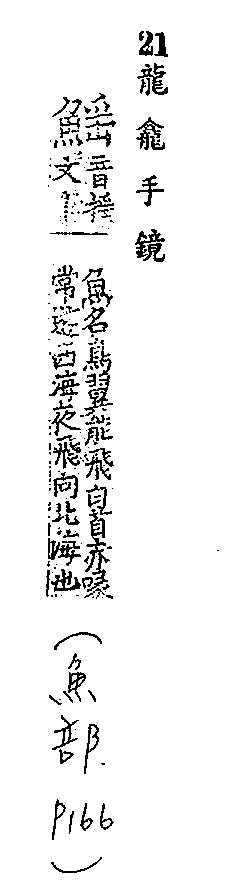 21龍龕手鏡
鰩
音搖
魚名鳥翼能飛白首赤喙
常遊西海夜飛向北海也
（魚部. P166）